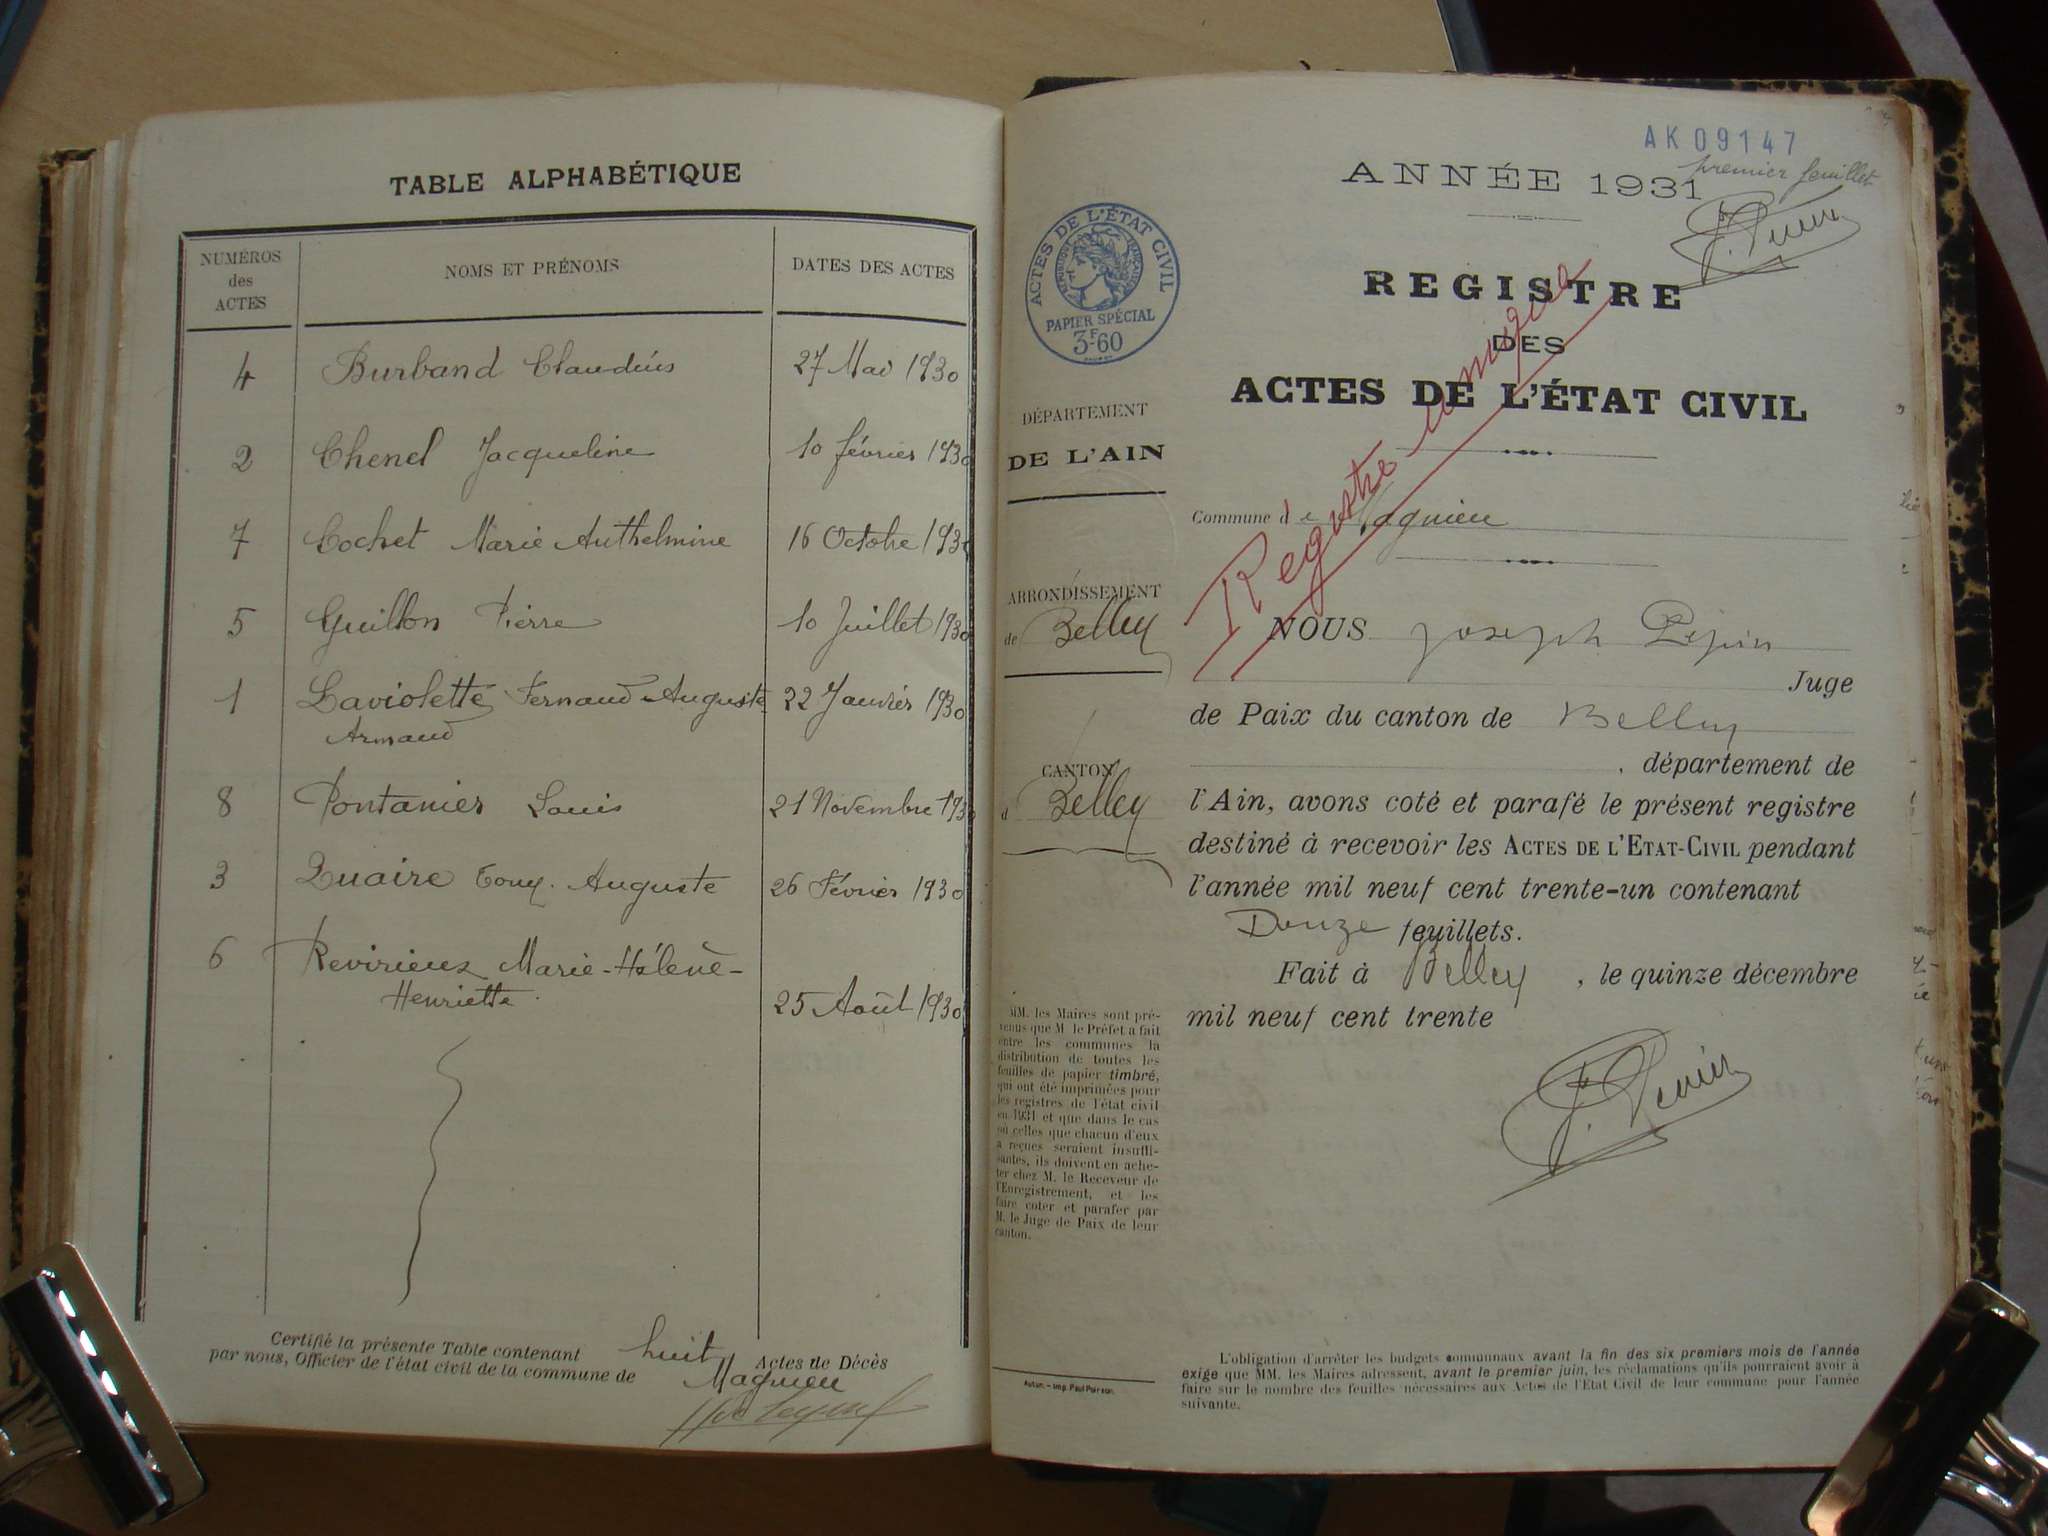 TABLE ALPHABÉTIQUE
NUMÉROS des ACTES
NOMS ET PRÉNOMS
DATES DES ACTES
4 Burband Claudius 27 Mai 1930
2 Chenel Jacqueline 10 février 1930
7 Cochet Marie Anthelmine 16 Octobre 1930
5 Guillon Pierre 10 Juillet 1930
1 Laviolette Fernand Auguste 22 Janvier 1930
Armand
8 Pontanier Louis 21 Novembre 1930
3 Quaire Tony. Auguste 26 Février 1930
6 Revirieux Marie-Hélène-
Henriette. 25 Août 1930
Certifié la présente Table contenant huit Actes de Décès
par nous, Officier de l'état civil de la commune de Magnieu
AK 09147
ANNÉE 1931
premier feuillet
ACTES DE L'ÉTAT CIVIL
RÉPUBLIQUE FRANÇAISE
PAPIER SPÉCIAL
3F60
REGISTRE
DES
ACTES DE L'ÉTAT CIVIL
Registre unique
DÉPARTEMENT
DE L'AIN
ARRONDISSEMENT
de Belley
CANTON
d Belley
MM. les Maires sont pré-
venus que M. le Préfet a fait
entre les communes la
distribution de toutes les
feuilles de papier timbré,
qui ont été imprimées pour
les registres de l'état civil
en 1931 et que dans le cas
où celles que chacun d'eux
a reçues seraient insuffi-
santes, ils doivent en ache-
ter chez M. le Receveur de
l'Enregistrement, et les
faire coter et parafer par
M. le Juge de Paix de leur
canton.
Autun. — Imp. Paul Poirson.
Commune de Magnieu
NOUS Joseph
Juge
de Paix du canton de Belley
, département de
l'Ain, avons coté et parafé le présent registre
destiné à recevoir les ACTES DE L'ETAT-CIVIL pendant
l'année mil neuf cent trente-un contenant
Douze feuillets.
Fait à Belley , le quinze décembre
mil neuf cent trente
L'obligation d'arrêter les budgets communaux avant la fin des six premiers mois de l'année
exige que MM. les Maires adressent, avant le premier juin, les réclamations qu'ils pourraient avoir à
faire sur le nombre des feuilles nécessaires aux Actes de l'Etat Civil de leur commune pour l'année
suivante.